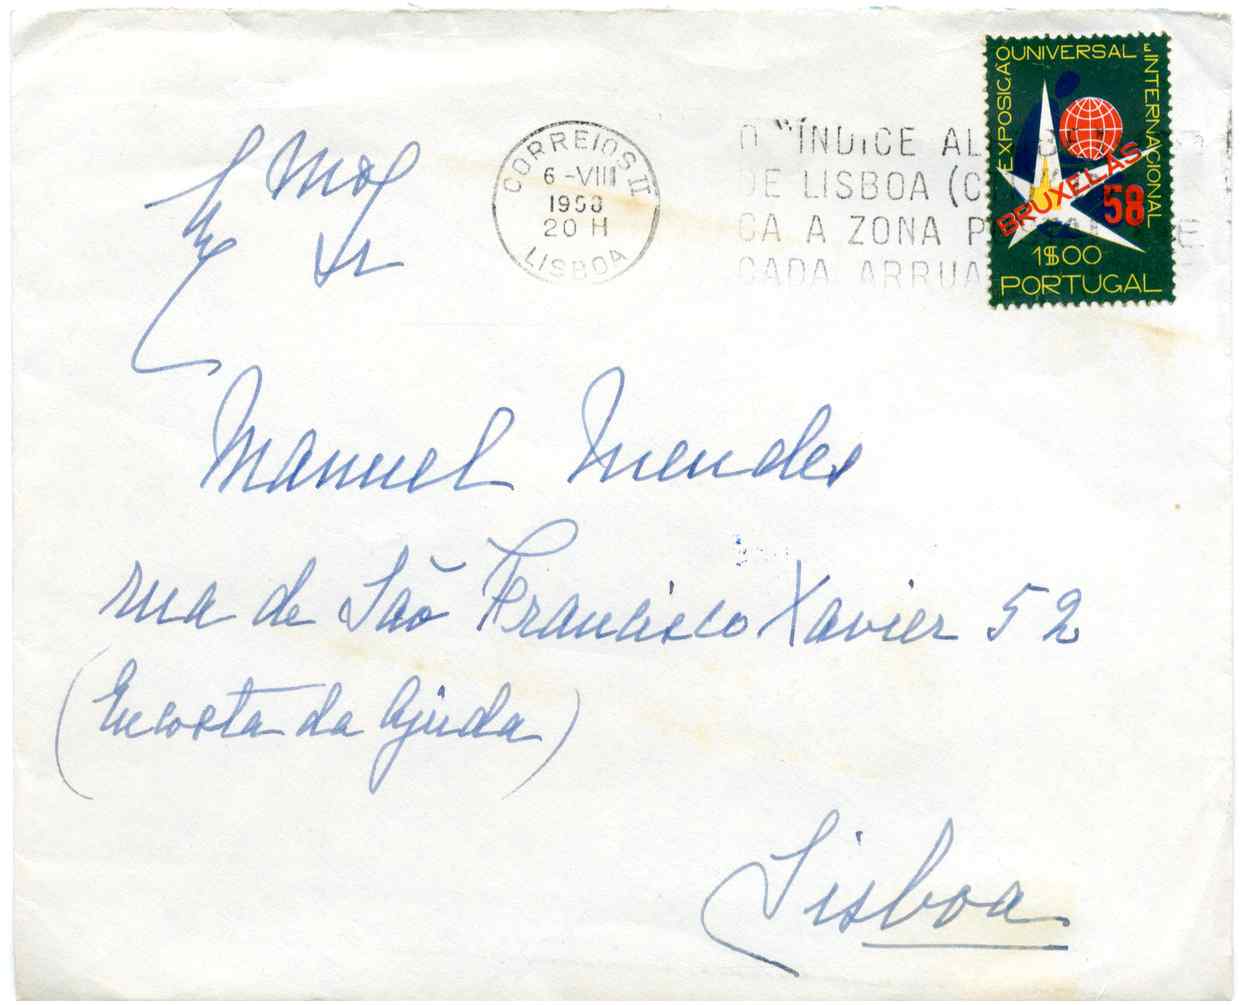 EXPOSIÇÃO UNIVERSAL E INTERNACIONAL
BRUXELAS
58
1$00
PORTUGAL
CORREIOS II
6-VIII
1958
20 H
LISBOA
O "ÍNDICE
DE LISBOA
CA A ZONA
CADA
Exmo
Sr
Manuel Mendes
rua de São Francisco Xavier 52
(Encosta da Ajuda)
Lisboa